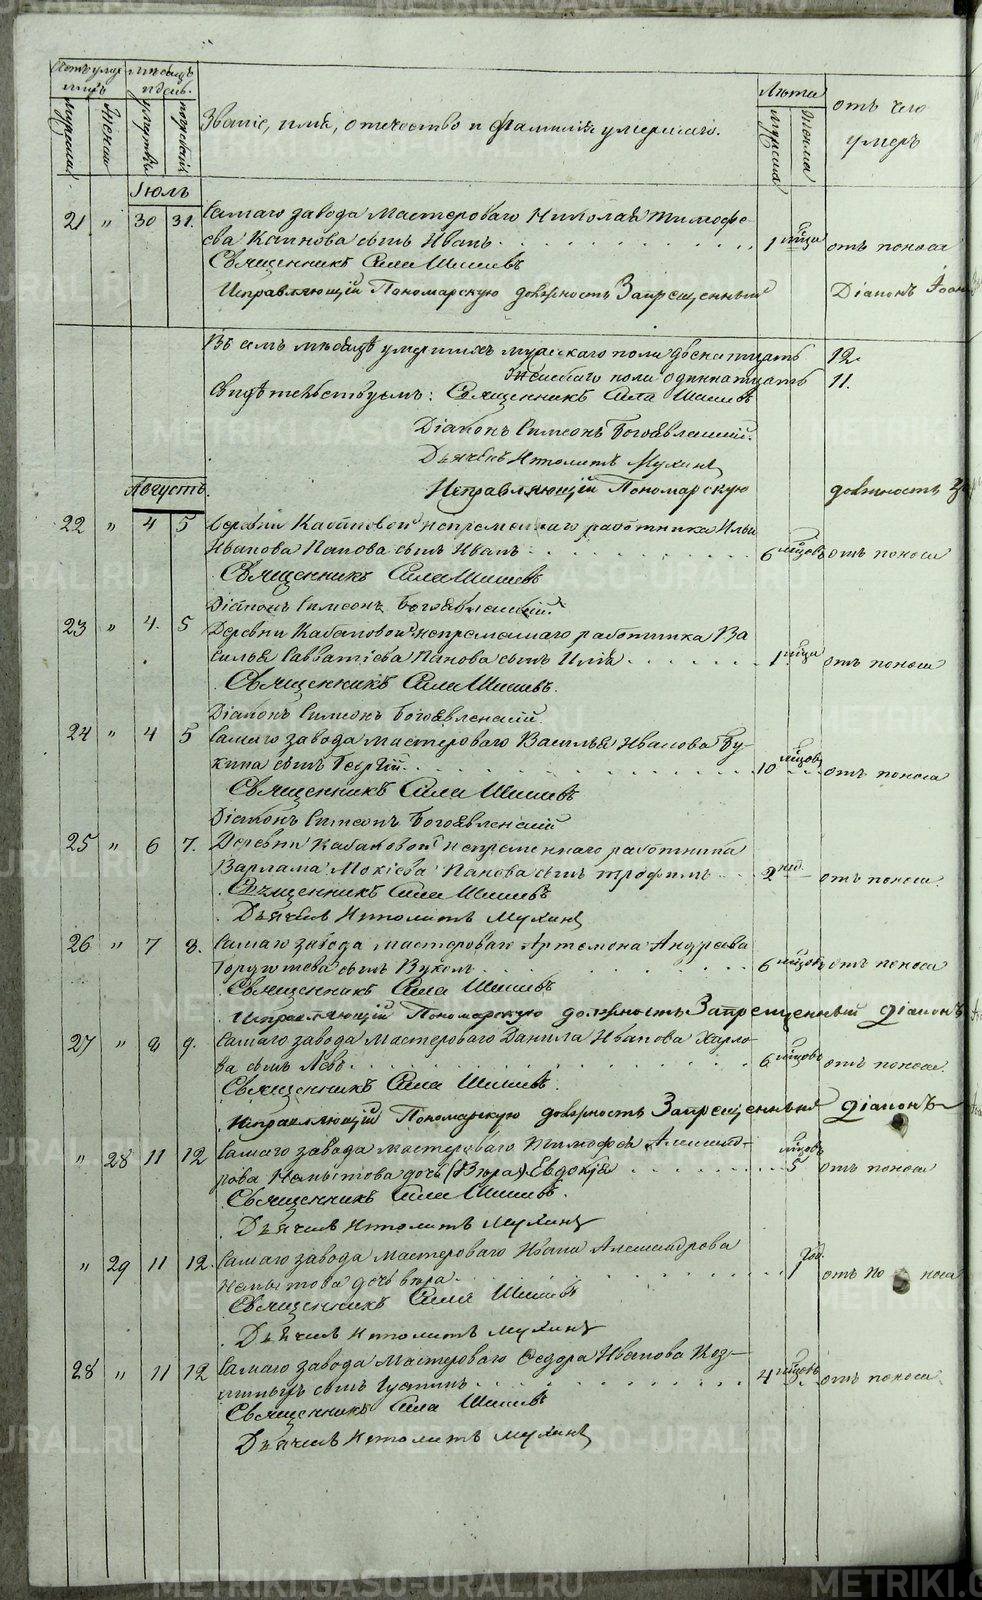 Счетъ умер
шихъ
Мѣсяцъ
и день.
Лѣта
мужеска
женска
смерти
погребенія
Званіе, имя, отечество и фамилія умершаго.
мужеска
женска
отъ чего
умеръ
Іюль
21 " 30 31. Самаго завода Мастероваго Николая Тимофе-
ева сынъ Иванъ. 1 мѣсяца отъ поноса
Священникъ Сила Шишевъ
Исправляющій Пономарскую должность Запрещенный Діаконъ
Въ семъ мѣсяцѣ умершихъ мужескаго пола двенатцать 12.
Женскаго пола одиннатцать 11.
Свидѣтельствуемъ: Священникъ Сила Шишевъ
Діаконъ Симеонъ Богоявленскій.
Дьячекъ Ипполитъ Мухинъ
Исправляющій Пономарскую должность
Августъ.
22 " 4 5 Деревни непременнаго работника Ильи
Иванова Панова сынъ Иванъ. 6 мѣсяцовъ отъ поноса
Священникъ Сила Шишевъ
Діаконъ Симеонъ Богоявленскій.
23 " 4. 5 Деревни Кабановой непременнаго работника Ва
силья Савватіева Панова сынъ Илія 1 мѣсяца отъ поноса
Священникъ Сила Шишевъ.
Діаконъ Симеонъ Богоявленскій.
24 " 4 5 Самаго завода мастероваго Василья Иванова Бу-
кина сынъ Георгій. 10 мѣсяцовъ отъ поноса
Священникъ Сила Шишевъ
Діаконъ Симеонъ Богоявленскій
25 " 6 7. Деревни Кабановой непременнаго работника
Варлама Мокіева Панова сынъ Трофимъ 2 нед. отъ поноса.
Священникъ Сила Шишевъ
Дьячекъ Ипполитъ Мухинъ
26 " 7 8. Самаго завода мастероваго Артемона Андреева
сынъ Вуколъ. 6 мѣсяцовъ отъ поноса
Священникъ Сила Шишевъ
Исправляющій Пономарскую должность Запрещенный Діаконъ
27 " 8 9. Самаго завода Мастероваго Данила Иванова Харло-
ва сынъ Левъ. 6 мѣсяцовъ отъ поноса.
Священникъ Сила Шишевъ.
Исправляющій Пономарскую должность Запрещенный Діаконъ
" 28 11 12 Самаго завода мастероваго Тимофея
дочь Евдокія 5 мѣсяцовъ отъ поноса
Священникъ Сила Шишевъ.
Дьячекъ Ипполитъ Мухинъ
" 29 11 12. Самаго завода Мастероваго Ивана Александрова
дочь Вѣра. 1 год. отъ поноса
Священникъ Сила Шишевъ
Дьячекъ Ипполитъ Мухинъ
28 " 11 12 Самаго завода Мастероваго Федора Иванова
сынъ Густинъ. 4 мѣсяцовъ отъ поноса.
Священникъ Сила Шишевъ
Дьячекъ Ипполитъ Мухинъ
METRIKI.GASO-URAL.RU